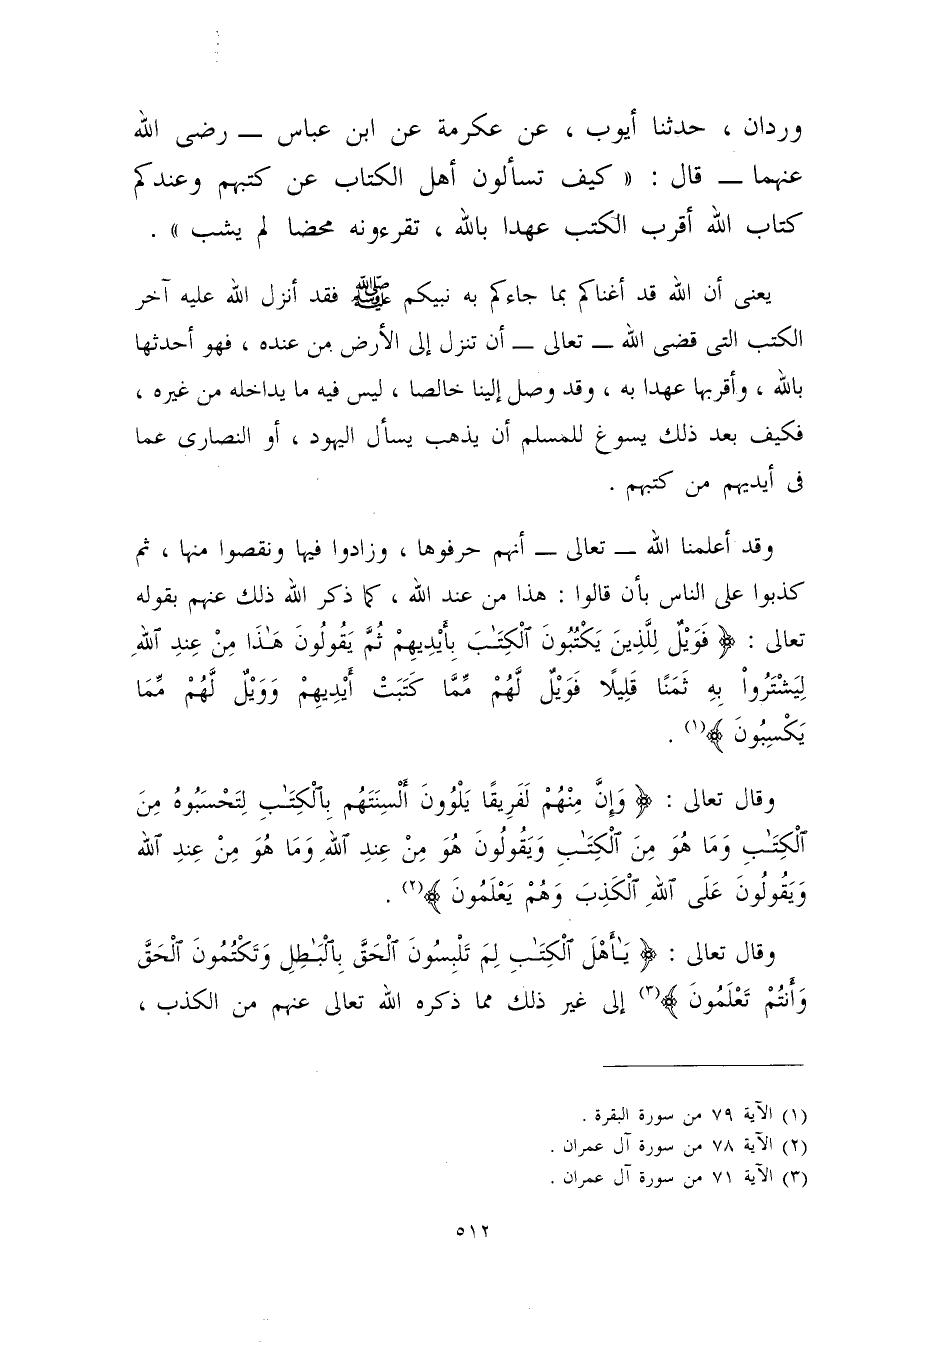 وردان ، حدثنا أيوب ، عن عكرمة عن ابن عباس ــ رضى الله
عنهما ــ قال : « كيف تسألون أهل الكتاب عن كتبهم وعندكم
كتاب الله أقرب الكتب عهدا بالله ، تقرءونه محضا لم يشب » .
يعنى أن الله قد أغناكم بما جاءكم به نبيكم ﷺ فقد أنزل الله عليه آخر
الكتب التى قضى الله ــ تعالى ــ أن تنزل إلى الأرض من عنده ، فهو أحدثها
بالله ، وأقربها عهدا به ، وقد وصل إلينا خالصا ، ليس فيه ما يداخله من غيره ،
فكيف بعد ذلك يسوغ للمسلم أن يذهب يسأل اليهود ، أو النصارى عما
فى أيديهم من كتبهم .
وقد أعلمنا الله ــ تعالى ــ أنهم حرفوها ، وزادوا فيها ونقصوا منها ، ثم
كذبوا على الناس بأن قالوا : هذا من عند الله ، كما ذكر الله ذلك عنهم بقوله
تعالى : ﴿ فَوَيْلٌ لِلَّذِينَ يَكْتُبُونَ ٱلْكِتَٰبَ بِأَيْدِيهِمْ ثُمَّ يَقُولُونَ هَٰذَا مِنْ عِندِ ٱللَّهِ
لِيَشْتَرُواْ بِهِ ثَمَنًا قَلِيلًا فَوَيْلٌ لَّهُمْ مِّمَّا كَتَبَتْ أَيْدِيهِمْ وَوَيْلٌ لَّهُمْ مِّمَا
يَكْسِبُونَ ﴾(١) .
وقال تعالى : ﴿ وَإِنَّ مِنْهُمْ لَفَرِيقًا يَلْوُونَ أَلْسِنَتَهُم بِٱلْكِتَٰبِ لِتَحْسَبُوهُ مِنَ
ٱلْكِتَٰبِ وَمَا هُوَ مِنَ ٱلْكِتَٰبِ وَيَقُولُونَ هُوَ مِنْ عِندِ ٱللَّهِ وَمَا هُوَ مِنْ عِندِ ٱللَّهِ
وَيَقُولُونَ عَلَى ٱللَّهِ ٱلْكَذِبَ وَهُمْ يَعْلَمُونَ ﴾(٢) .
وقال تعالى : ﴿ يَٰأَهْلَ ٱلْكِتَٰبِ لِمَ تَلْبِسُونَ ٱلْحَقَّ بِٱلْبَٰطِلِ وَتَكْتُمُونَ ٱلْحَقَّ
وَأَنتُمْ تَعْلَمُونَ ﴾(٣) إلى غير ذلك مما ذكره الله تعالى عنهم من الكذب ،
(١) الآية ٧٩ من سورة البقرة .
(٢) الآية ٧٨ من سورة آل عمران .
(٣) الآية ٧١ من سورة آل عمران .
٥١٢